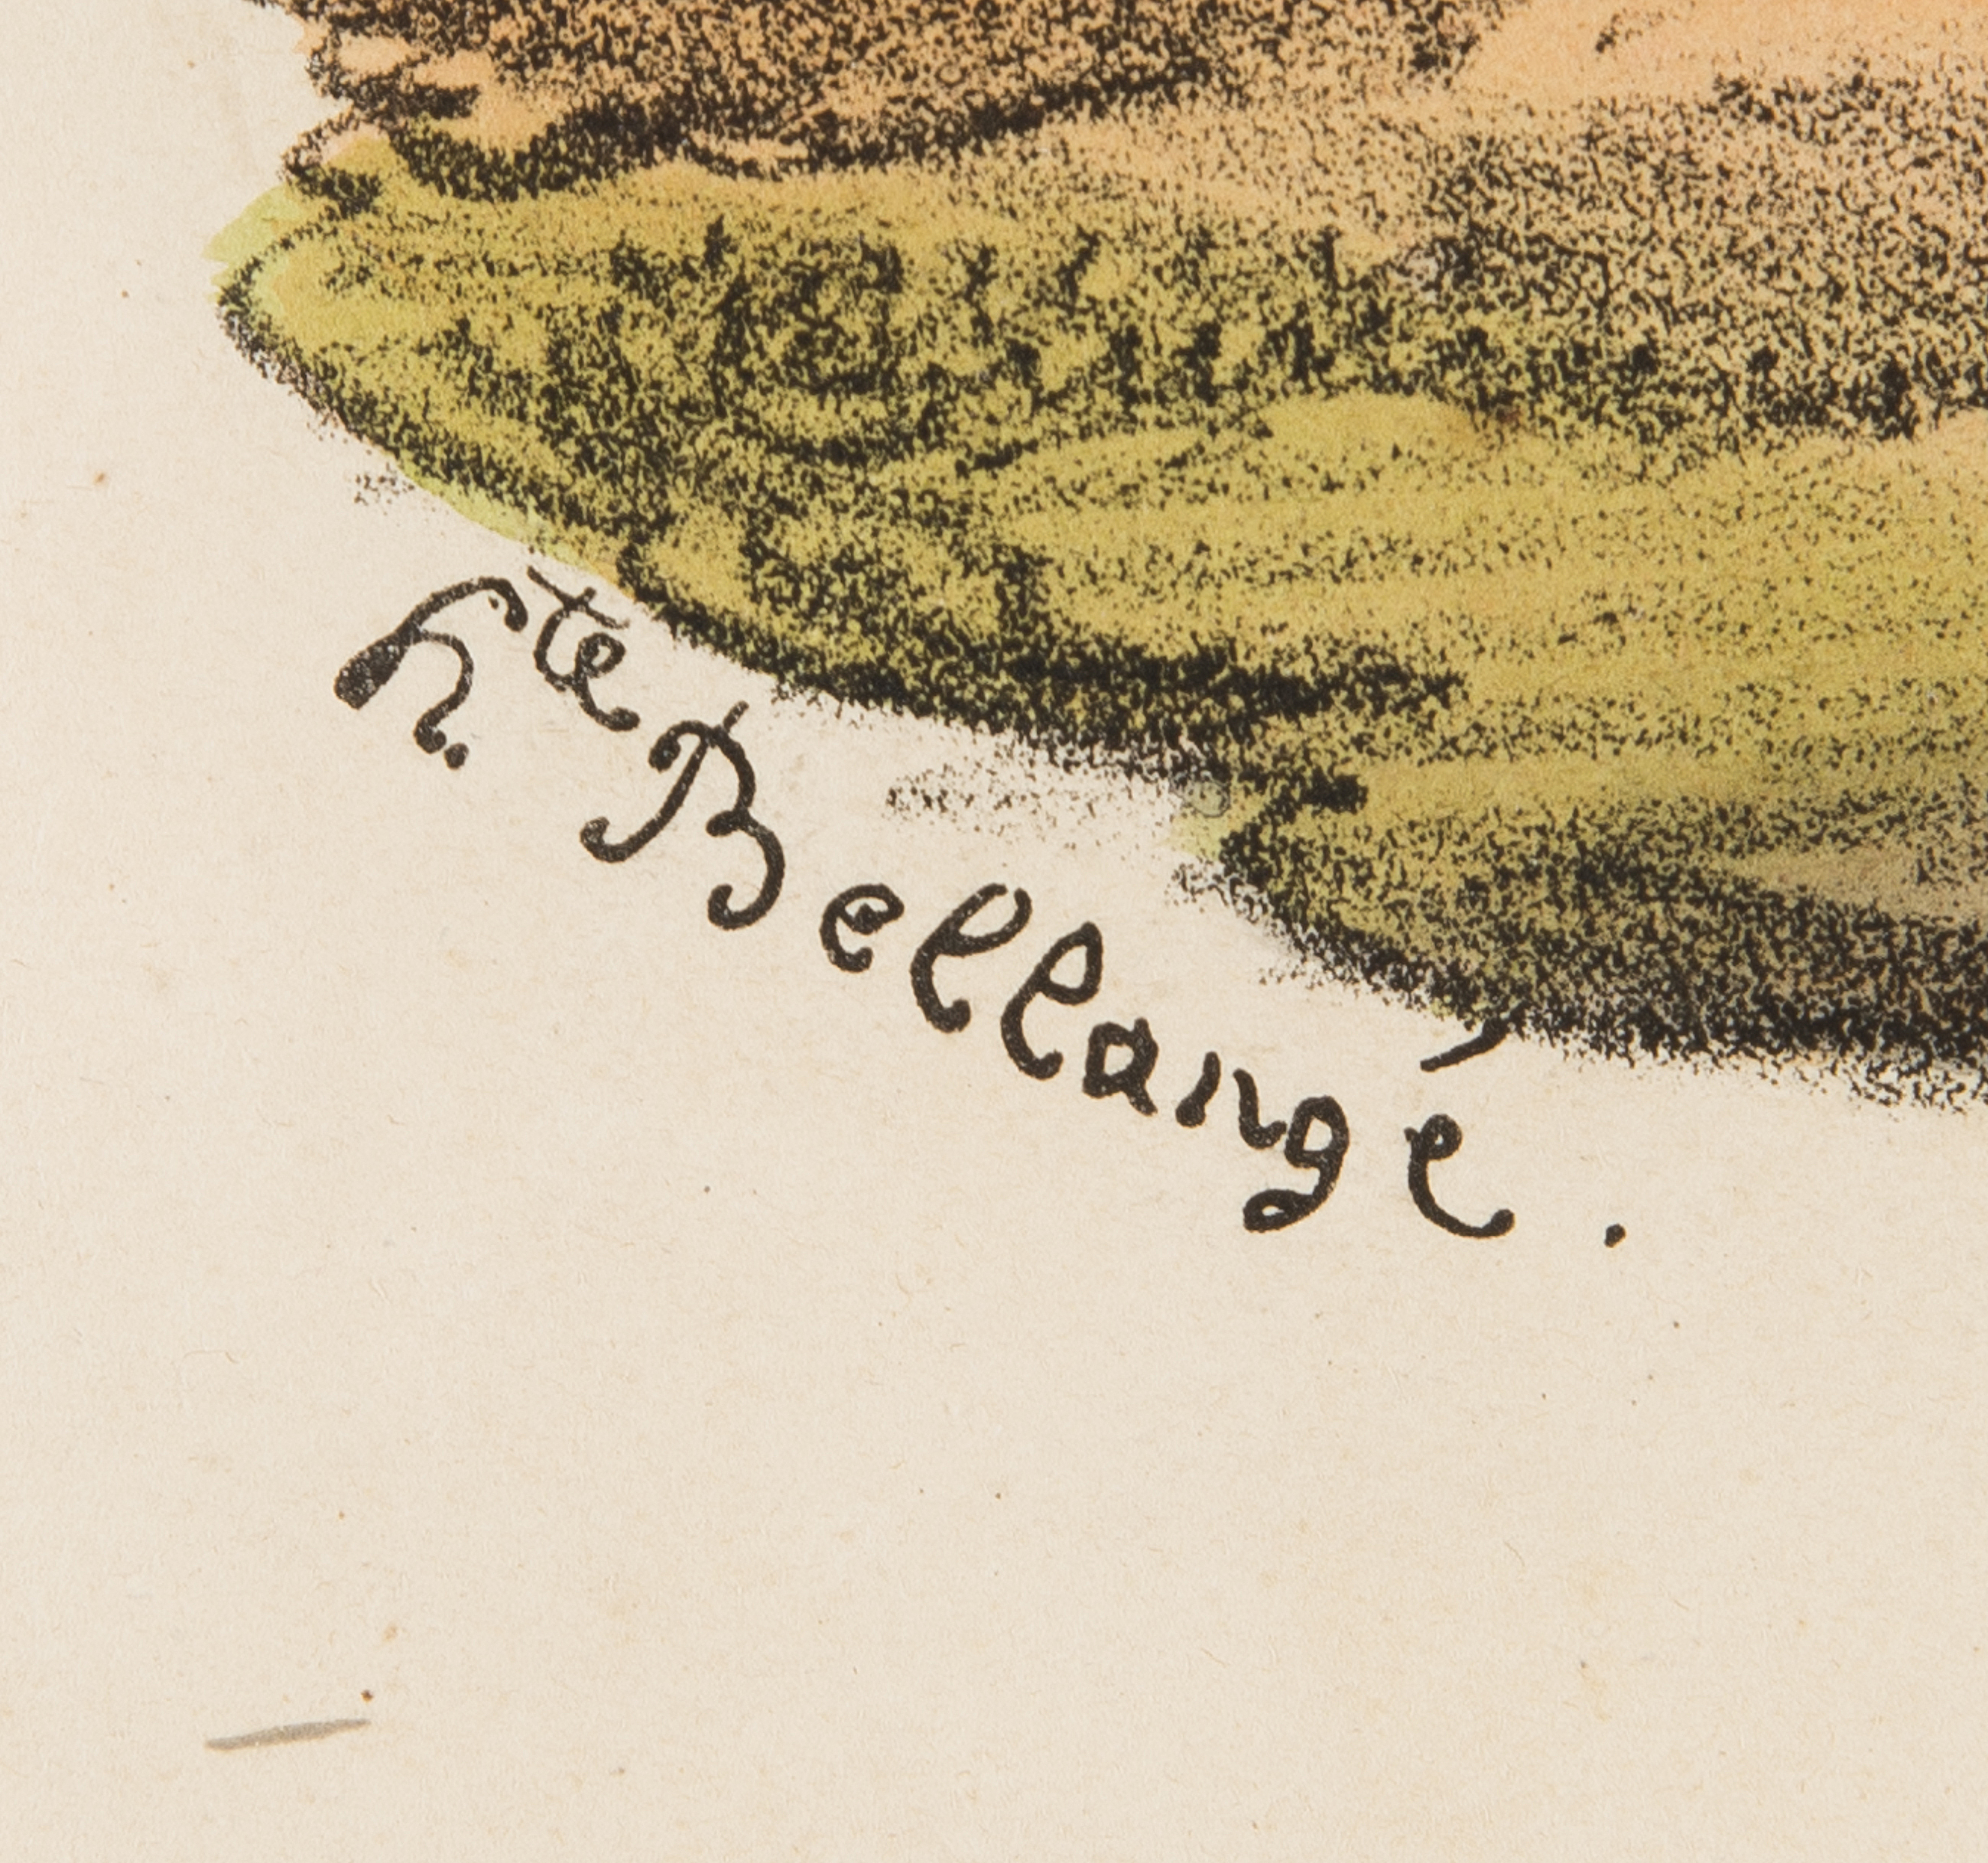 hte Bellangé.